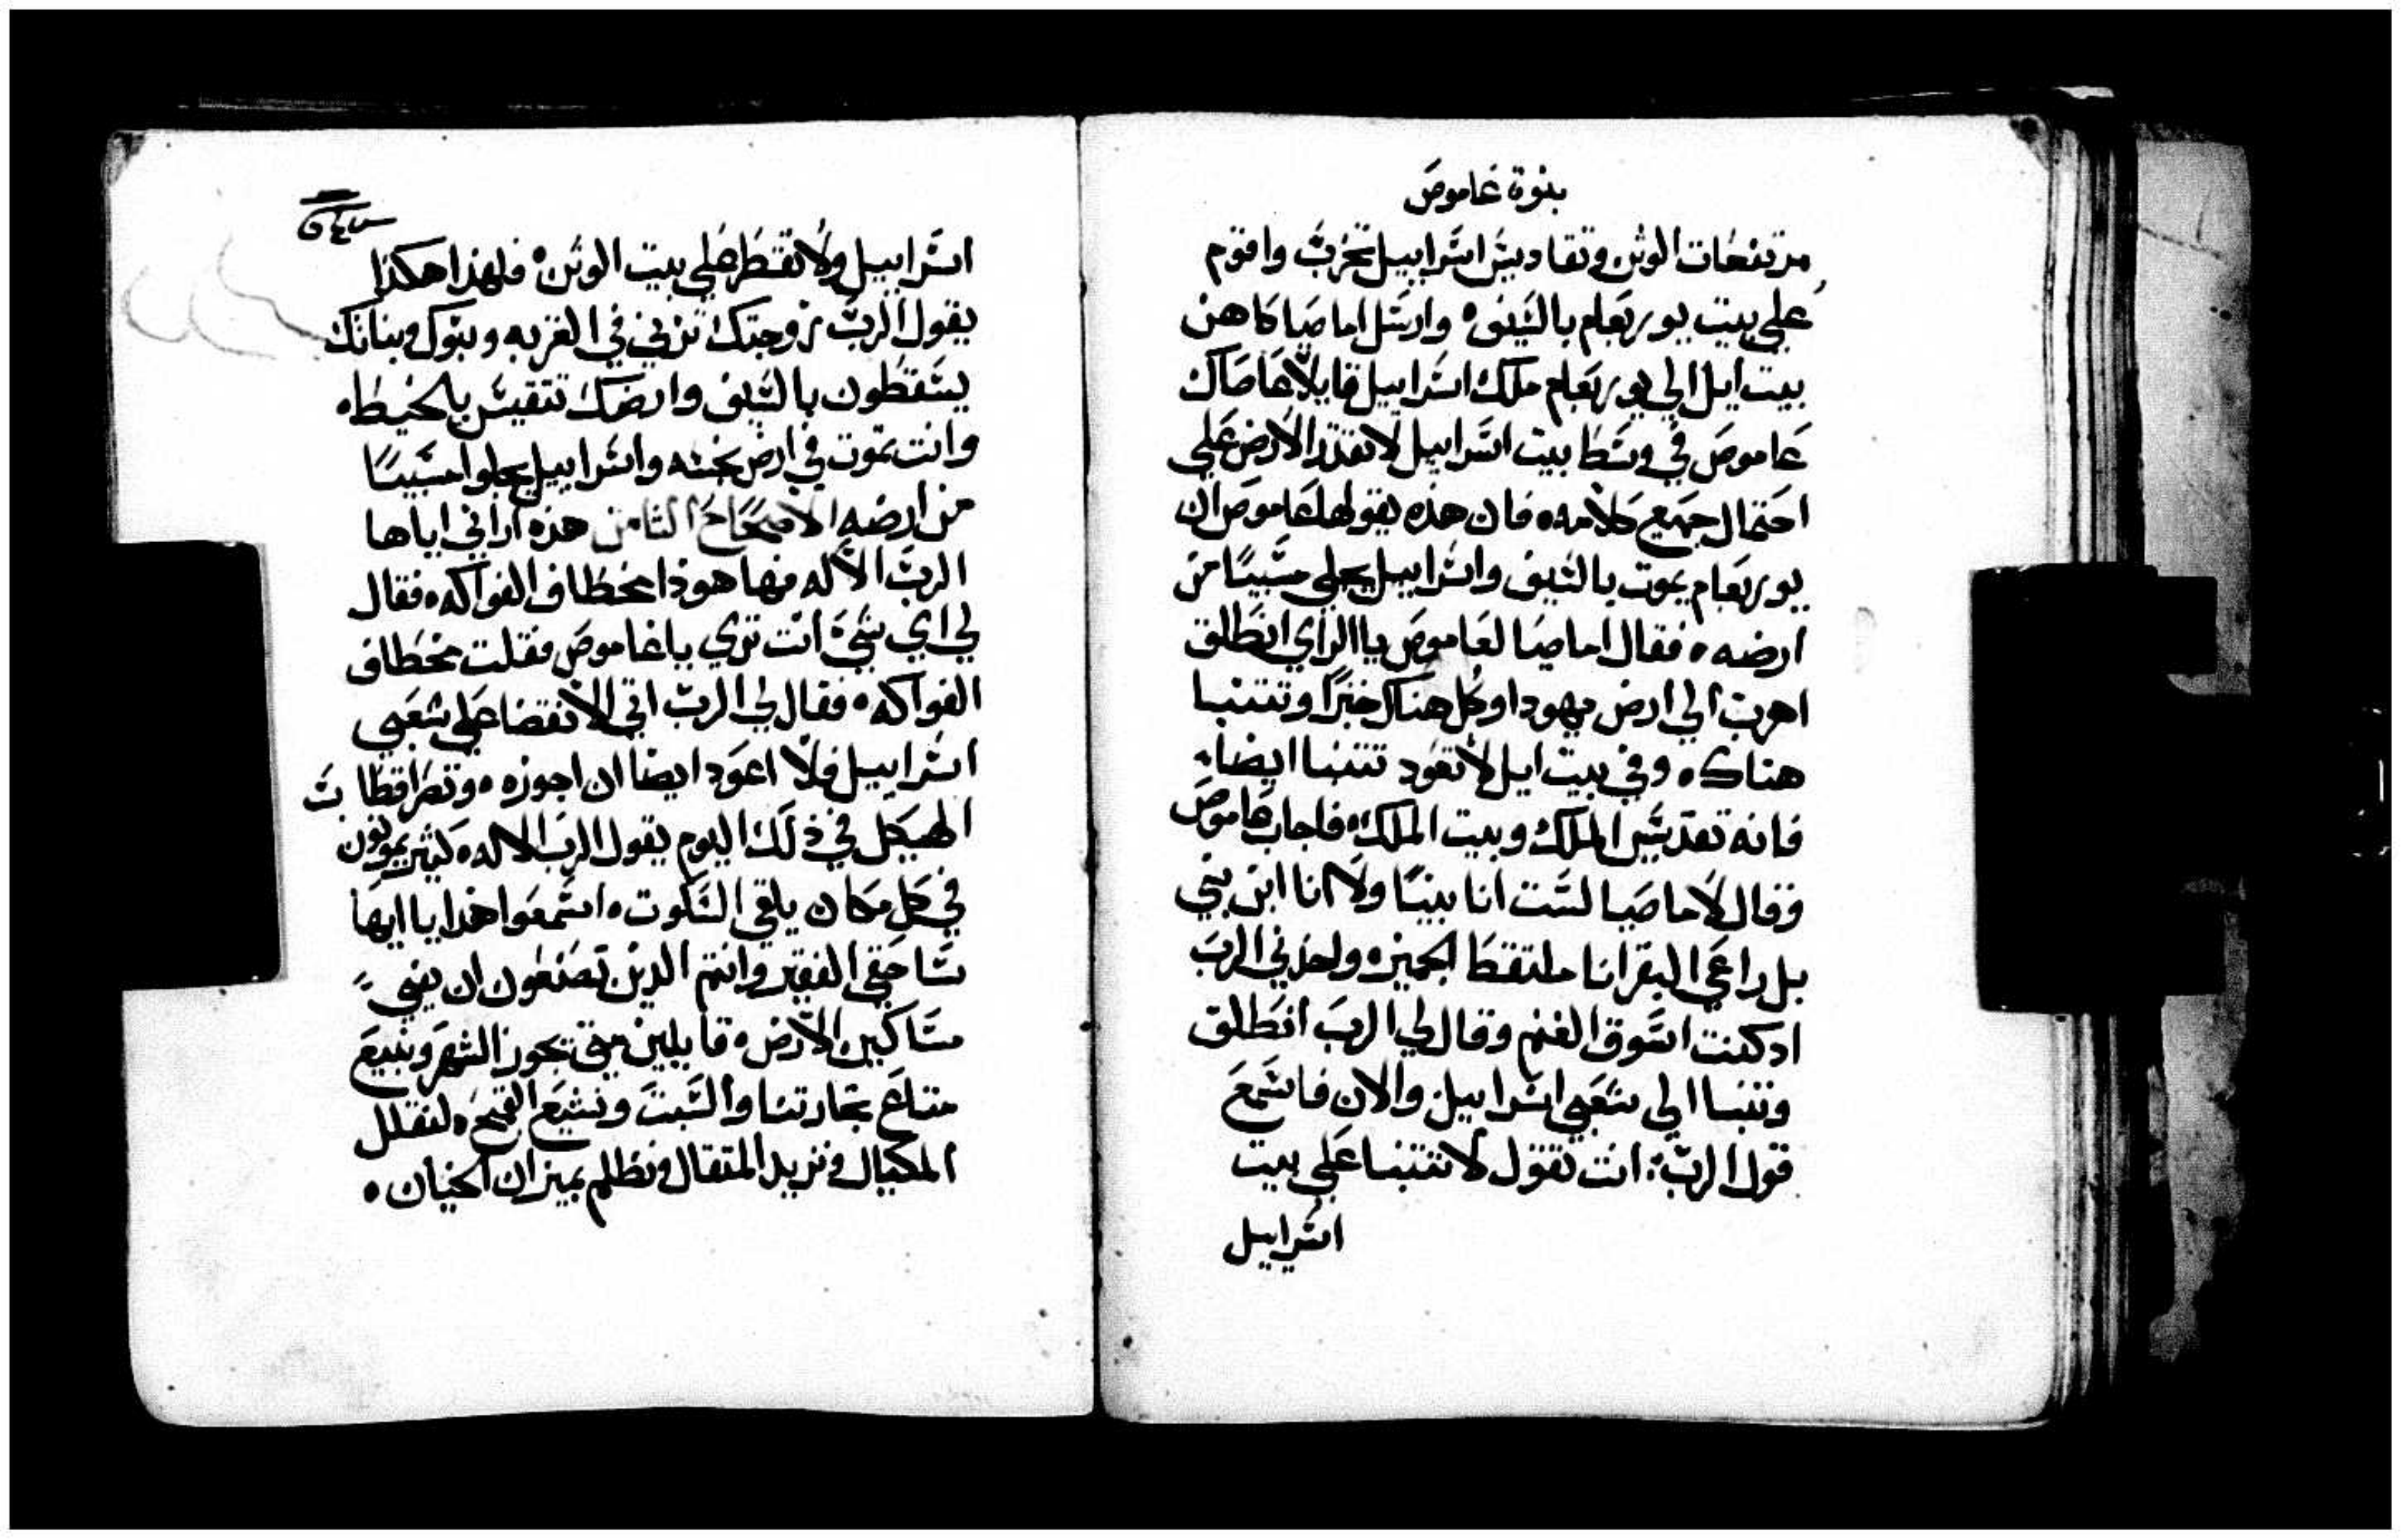 بنوة عاموص
مرتفعات الوثن وتقاديس اسراييل تخرب واقوم
علي بيت يوربعام بالسيف وارسل اماصيا كاهن
بيت ايل الي يوربعام ملك اسراييل قايلا عاصاك
عاموص في وسط بيت اسراييل لا تقدر الارض علي
احتمال جميع كلامه فان هذه يقولها عاموص ان
يوربعام يموت بالسيف واسراييل يجلي مسبيا من
ارضه فقال اماصيا لعاموص يا الراي انطلق
اهرب الي ارض يهودا وكل هناك خبزا وتتنبا
هناك وفي بيت ايل لا تعود تتنبا ايضا
فانه تقديس الملك وبيت الملك فاجاب عاموص
وقال لاماصيا لست انا بنيا ولا انا ابن بني
بل راعي البقر انا ملتقط الجميز واخذني الرب
اذ كنت اسوق الغنم وقال لي الرب انطلق
وتنبا الي شعبي اسراييل والان فاسمع
قول الرب انت تقول لا تتنبا علي بيت
اسراييل
اسراييل ولا تقطر علي بيت الوثن فلهذا هكذا
يقول الرب زوجتك تزني في القريه وبنوك وبناتك
يسقطون بالسيف وارضك تتقيس بالخيط
وانت تموت في ارض نجسه واسراييل يجلوا مسبيا
من ارضه الاصحاح الثامن هذه اراني اياها
الرب الاله منها هوذا مخطاف الفواكه فقال
لي اي شي انت تري يا عاموص فقلت مخطاف
الفواكه فقال لي الرب اتي الانقضا علي شعبي
اسراييل فلا اعود ايضا ان اجوزه وتصر اقطاب
الهيكل في ذلك اليوم يقول الرب الاله كثير يموتون
في كل مكان يلقي السكوت اسمعوا هذا يا ايها
ساحقي الفقير وانتم الذين تصنعون ان يفني
مساكين الارض قايلين متي يجوز الشهر ونبيع
متاع تجارتنا والسبت ونشبع القمح لنقلل
المكيال ونزيد المثقال ونظلم بميزان الخيان